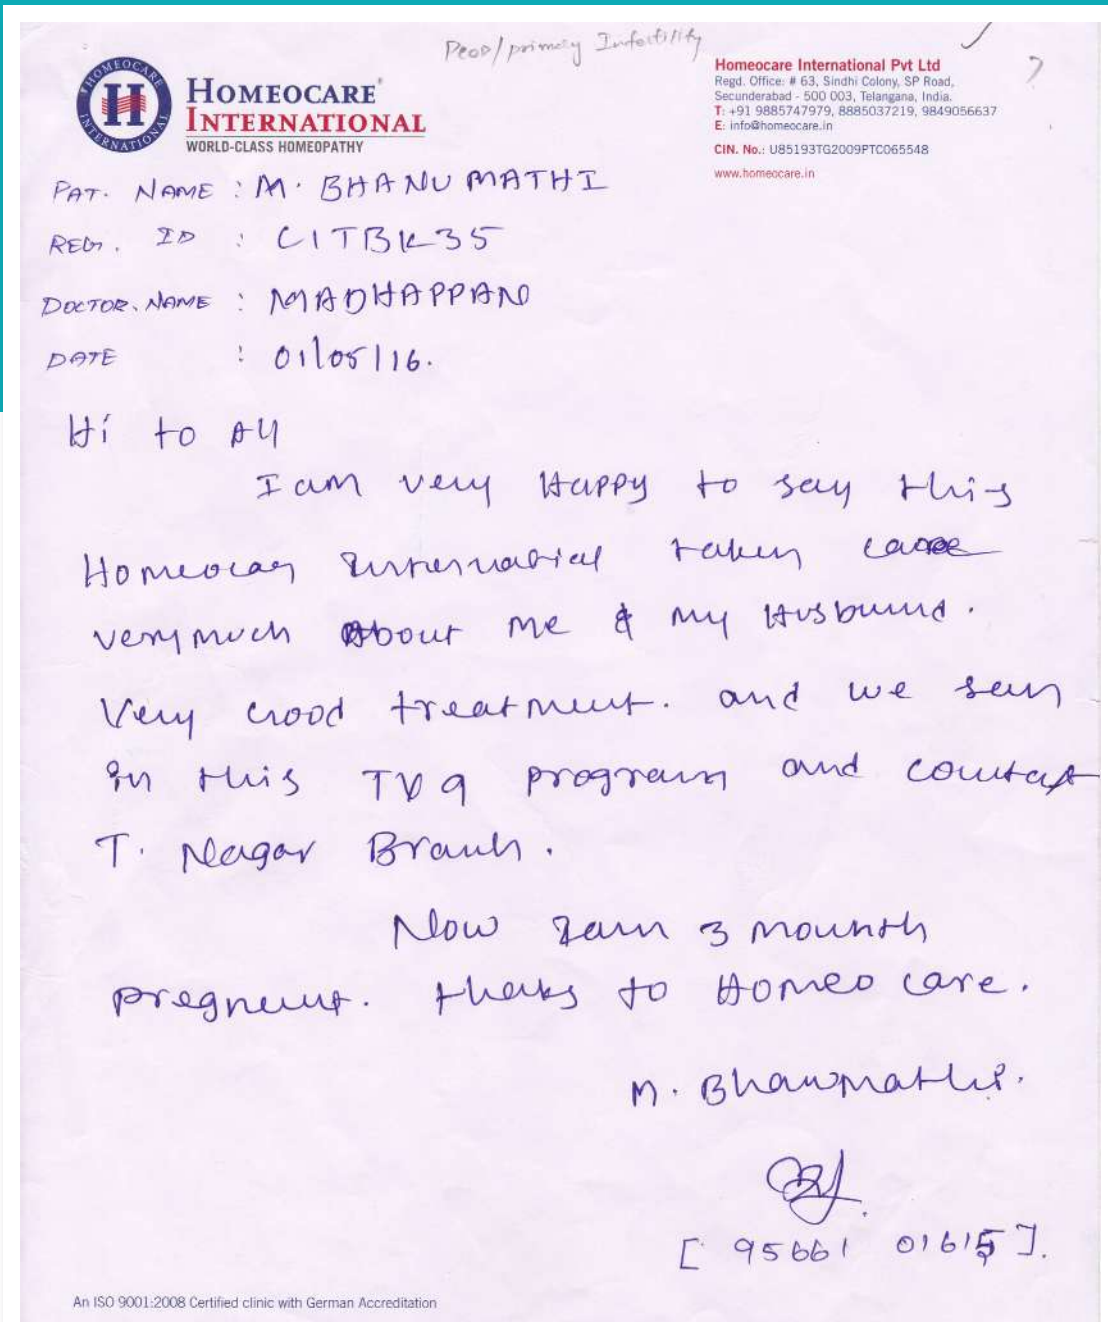 Pcod/primary Infertility
HOMEOCARE INTERNATIONAL
HOMEOCARE®
INTERNATIONAL
WORLD-CLASS HOMEOPATHY
Homeocare International Pvt Ltd
Regd. Office: # 63, Sindhi Colony, SP Road,
Secunderabad - 500 003, Telangana, India.
T: +91 9885747979, 8885037219, 9849056637
E: info@homeocare.in
CIN. No.: U85193TG2009PTC065548
www.homeocare.in
PAT. NAME : M. BHANUMATHI
REG. ID : CITBK35
DOCTOR. NAME : MADHAPPAN
DATE : 01/05/16.
Hi to All
I am very Happy to say this
Homeocare International taken care
very much About me & my Husbund.
Very Good treatment. and we seen
in this TV9 program and contact
T. Nagar Branch.
Now I am 3 mounth
pregnent. thanks to Homeo care.
M. Bhanumathi.
[ 95661 01615 ].
An ISO 9001:2008 Certified clinic with German Accreditation